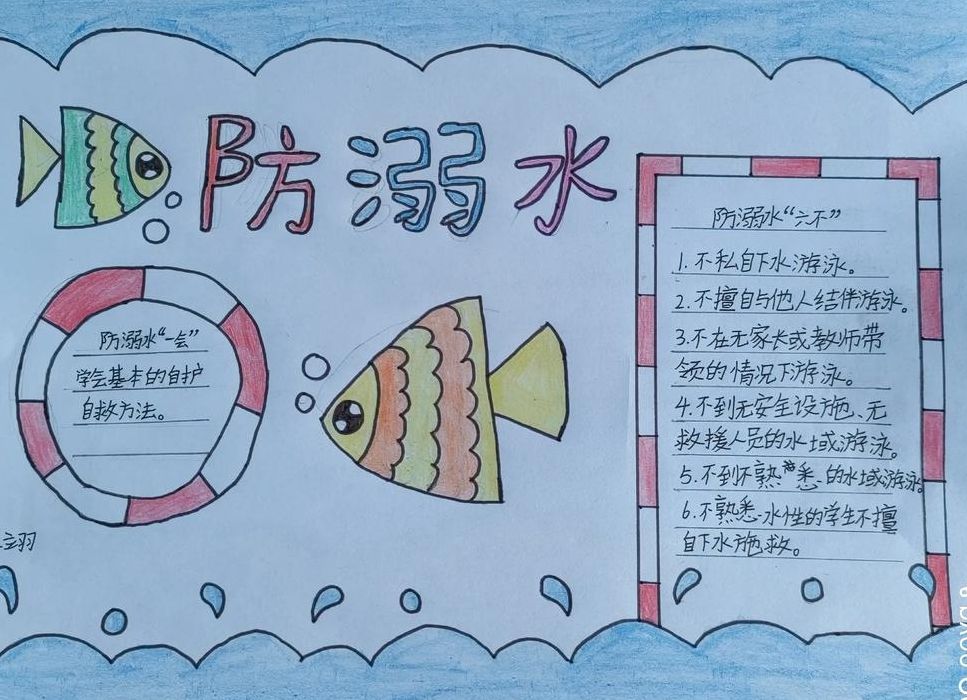 防溺水
防溺水“一会”
学会基本的自护
自救方法。
翊
防溺水“六不”
1.不私自下水游泳。
2.不擅自与他人结伴游泳。
3.不在无家长或教师带
领的情况下游泳。
4.不到无安全设施、无
救援人员的水域游泳。
5.不到不熟悉的水域游泳。
6.不熟悉水性的学生不擅
自下水施救。